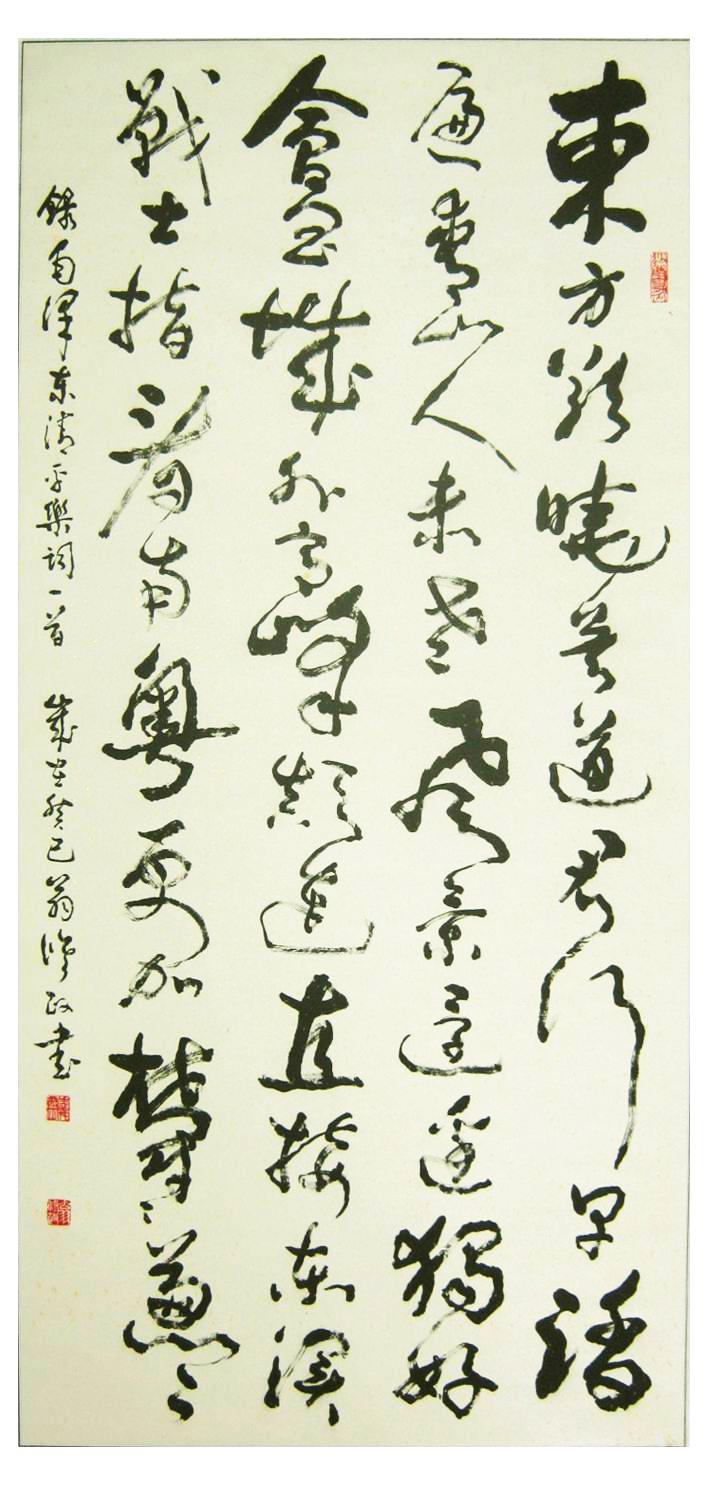 東方欲曉莫道君行早踏
遍青山人未老風景這邊獨好
會昌城外高峰顛連直接東溟
戰士指看南粵更加鬱〻葱〻
錄毛澤東清平樂詞一首 歲在癸巳翁政書